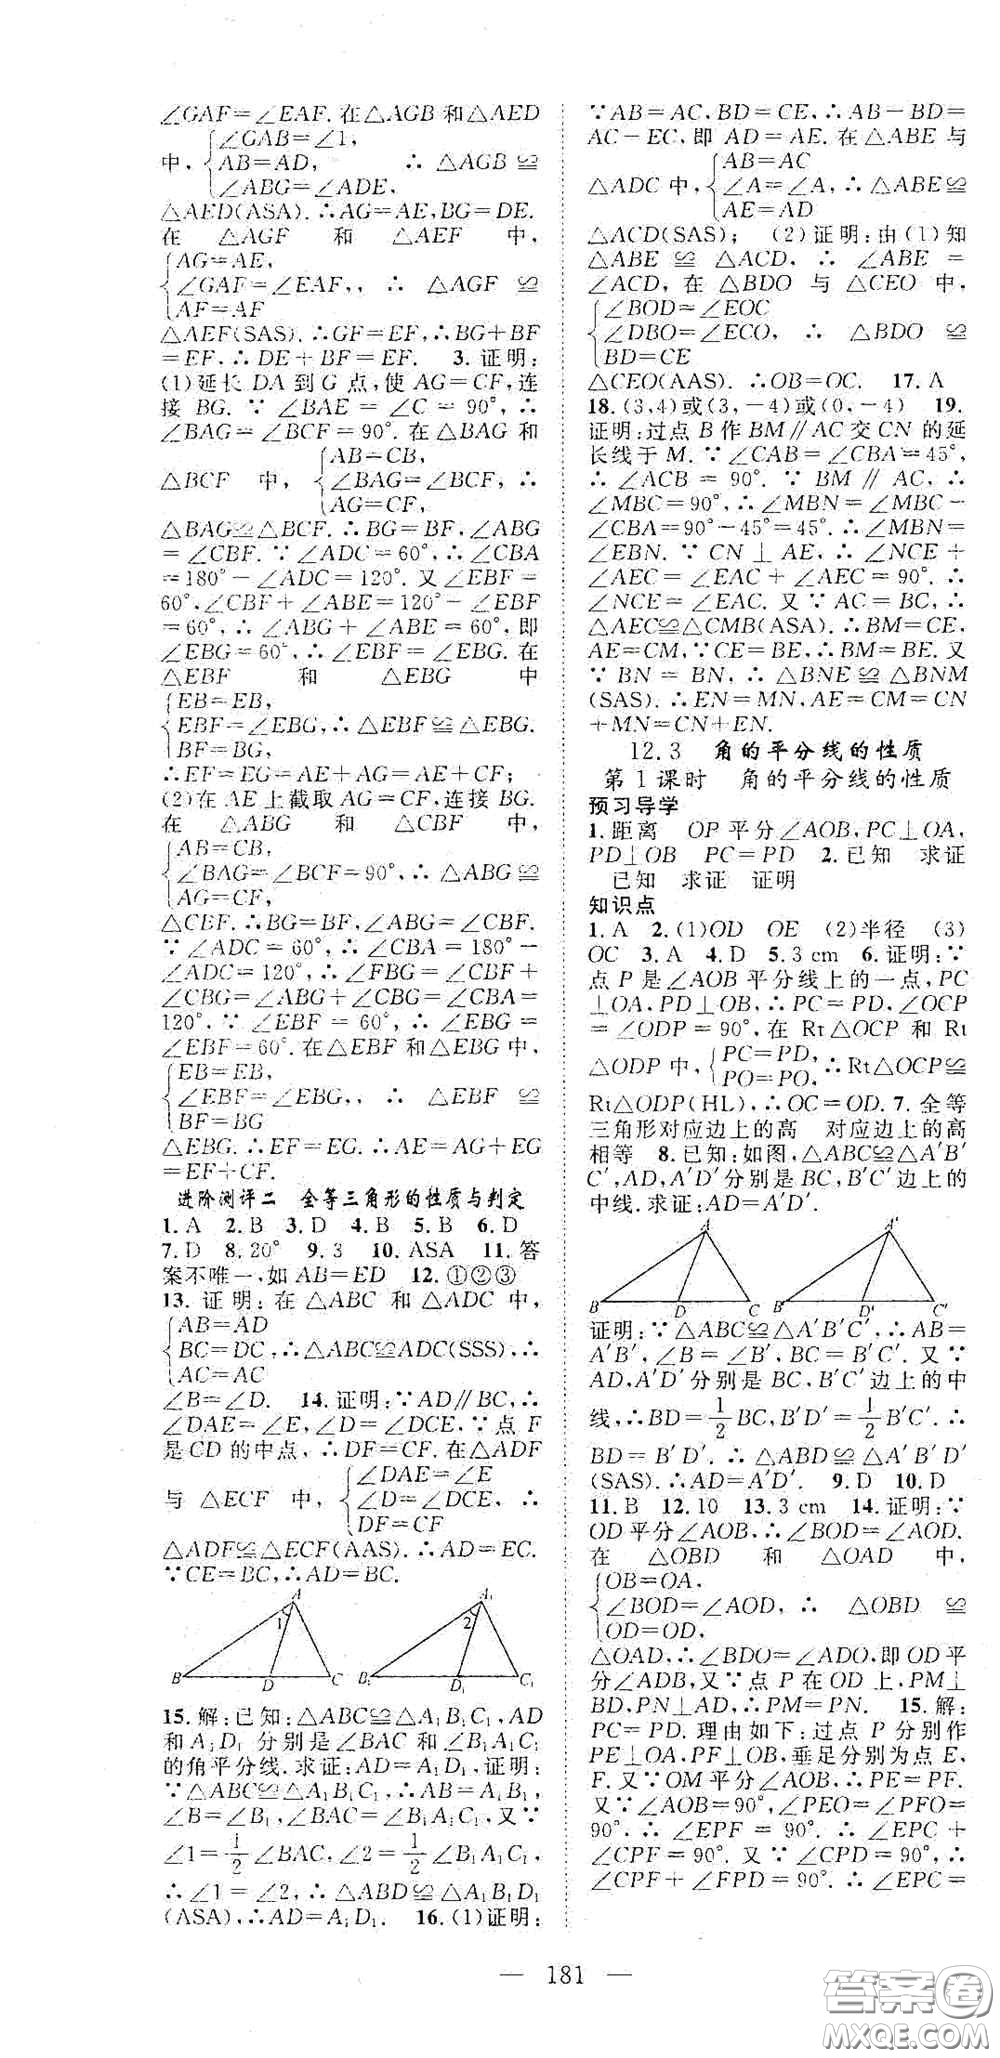 ∠GAF=∠EAF. 在△AGB 和△AED
中,{∠GAB=∠1, AB=AD, ∠ABG=∠ADE, ∴△AGB≌
△AED(ASA). ∴AG=AE,BG=DE.
在 △AGF 和 △AEF 中,
{AG=AE,
∠GAF=∠EAF,, ∴ △AGF ≌
AF=AF
△AEF(SAS). ∴GF=EF,∴BG+BF
=EF. ∴DE+BF=EF. 3. 证明:
(1)延长 DA 到 G 点,使 AG=CF,连
接 BG. ∵ ∠BAE = ∠C = 90°, ∴
∠BAG=∠BCF=90°. 在△BAG 和
△BCF 中,{AB=CB, ∠BAG=∠BCF, ∴ AG=CF,
△BAG≌△BCF. ∴BG=BF,∠ABG
=∠CBF. ∵∠ADC=60°,∴∠CBA
=180°-∠ADC=120°. 又∠EBF=
60°,∠CBF+∠ABE=120°-∠EBF
=60°,∴∠ABG+∠ABE=60°,即
∠EBG=60°,∴∠EBF=∠EBG. 在
△EBF 和 △EBG 中
{EB=EB,
EBF=∠EBG,∴△EBF≌△EBG.
BF=BG,
∴EF=EG=AE+AG=AE+CF;
(2)在AE上截取AG=CF,连接BG.
在 △ABG 和 △CBF 中,
{AB=CB,
∠BAG=∠BCF=90°,∴△ABG≌
AG=CF,
△CBF. ∴BG=BF,∠ABG=∠CBF.
∵∠ADC=60°,∴∠CBA=180°-
∠ADC=120°, ∴∠FBG=∠CBF+
∠CBG=∠ABG+∠CBG=∠CBA=
120°. ∵ ∠EBF = 60°, ∴ ∠EBG =
∠EBF=60°. 在△EBF和△EBG中,
{EB=EB,
∠EBF=∠EBG, ∴ △EBF ≌
BF=BG
△EBG. ∴EF=EG. ∴AE=AG+EG
=EF+CF.
进阶测评二 全等三角形的性质与判定
1. A 2. B 3. D 4. B 5. B 6. D
7. D 8. 20° 9. 3 10. ASA 11. 答
案不唯一,如 AB=ED 12. ①②③
13. 证明:在△ABC 和△ADC 中,
{AB=AD
BC=DC,∴△ABC≌ADC(SSS),∴
AC=AC
∠B=∠D. 14. 证明:∵AD∥BC,∴
∠DAE=∠E,∠D=∠DCE,∵点 F
是CD的中点,∴DF=CF. 在△ADF
与 △ECF 中,{∠DAE=∠E ∠D=∠DCE, ∴ DF=CF
△ADF≌△ECF(AAS). ∴AD=EC.
∵CE=BC,∴AD=BC.
A B D C 1 A₁ B₁ D₁ C₁ 2
15. 解:已知:△ABC≌△A₁B₁C₁,AD
和A₁D₁分别是∠BAC和∠B₁A₁C₁
的角平分线. 求证:AD=A₁D₁,证明:
∵△ABC≌△A₁B₁C₁,∴AB=A₁B₁,
∠B=∠B₁,∠BAC=∠B₁A₁C₁,又∵
∠1=1/2∠BAC,∠2=1/2∠B₁A₁C₁,
∴∠1=∠2,∴△ABD≌△A₁B₁D₁
(ASA),∴AD=A₁D₁. 16. (1)证明:
∵AB=AC,BD=CE,∴AB-BD=
AC-EC,即 AD=AE. 在△ABE 与
△ADC 中,{AB=AC ∠A=∠A,∴△ABE≌ AE=AD
△ACD(SAS); (2)证明:由(1)知
△ABE ≌ △ACD, ∴ ∠ABE =
∠ACD, 在 △BDO 与 △CEO 中,
{∠BOD=∠EOC
∠DBO=∠ECO, ∴ △BDO ≌
BD=CE
△CEO(AAS). ∴OB=OC. 17. A
18. (3,4)或(3,-4)或(0,-4) 19.
证明:过点 B 作 BM∥AC 交 CN 的延
长线于 M. ∵∠CAB=∠CBA=45°,
∴ ∠ACB = 90°. ∵ BM ∥ AC, ∴
∠MBC=90°,∴∠MBN=∠MBC-
∠CBA=90°-45°=45°. ∴∠MBN=
∠EBN. ∵ CN⊥AE, ∴∠NCE+
∠AEC=∠EAC+∠AEC=90°. ∴
∠NCE=∠EAC. 又∵AC=BC,∴
△AEC≌△CMB(ASA). ∴BM=CE,
AE=CM,∵CE=BE,∴BM=BE. 又
∵ BN = BN, ∴ △BNE ≌ △BNM
(SAS). ∴EN=MN,AE=CM=CN
+MN=CN+EN.
12.3 角的平分线的性质
第1课时 角的平分线的性质
预习导学
1. 距离 OP 平分∠AOB,PC⊥OA,
PD⊥OB PC=PD 2. 已知 求证
已知 求证 证明
知识点
1. A 2. (1)OD OE (2)半径 (3)
OC 3. A 4. D 5. 3 cm 6. 证明:∵
点 P 是∠AOB 平分线上的一点,PC
⊥OA,PD⊥OB,∴PC=PD,∠OCP
=∠ODP=90°,在 Rt△OCP 和 Rt
△ODP 中,{PC=PD, PO=PO, ∴Rt△OCP≌
Rt△ODP(HL),∴OC=OD. 7. 全等
三角形对应边上的高 对应边上的高
相等 8. 已知:如图,△ABC≌△A′B′
C′,AD,A′D′分别是 BC,B′C′边上的
中线. 求证:AD=A′D′.
A B D C A′ B′ D′ C′
证明:∵△ABC≌△A′B′C′,∴AB=
A′B′,∠B=∠B′,BC=B′C′. 又∵
AD,A′D′分别是 BC,B′C′边上的中
线,∴BD=1/2BC,B′D′=1/2B′C′. ∴
BD=B′D′. ∴△ABD≌△A′B′D′
(SAS). ∴AD=A′D′. 9. D 10. D
11. B 12. 10 13. 3 cm 14. 证明:∵
OD平分∠AOB,∴∠BOD=∠AOD.
在 △OBD 和 △OAD 中,
{OB=OA,
∠BOD=∠AOD, ∴ △OBD ≌
OD=OD,
△OAD,∴∠BDO=∠ADO,即 OD 平
分∠ADB,又∵点 P 在 OD 上,PM⊥
BD,PN⊥AD,∴PM=PN. 15. 解:
PC=PD. 理由如下:过点 P 分别作
PE⊥OA,PF⊥OB,垂足分别为点 E,
F. 又∵OM平分∠AOB,∴PE=PF.
又∵∠AOB=90°,∠PEO=∠PFO=
90°. ∴∠EPF=90°. ∴∠EPC+
∠CPF=90°. 又∵∠CPD=90°,∴
∠CPF+∠FPD=90°. ∴∠EPC=
— 181 —
答案圈
MXQE.COM